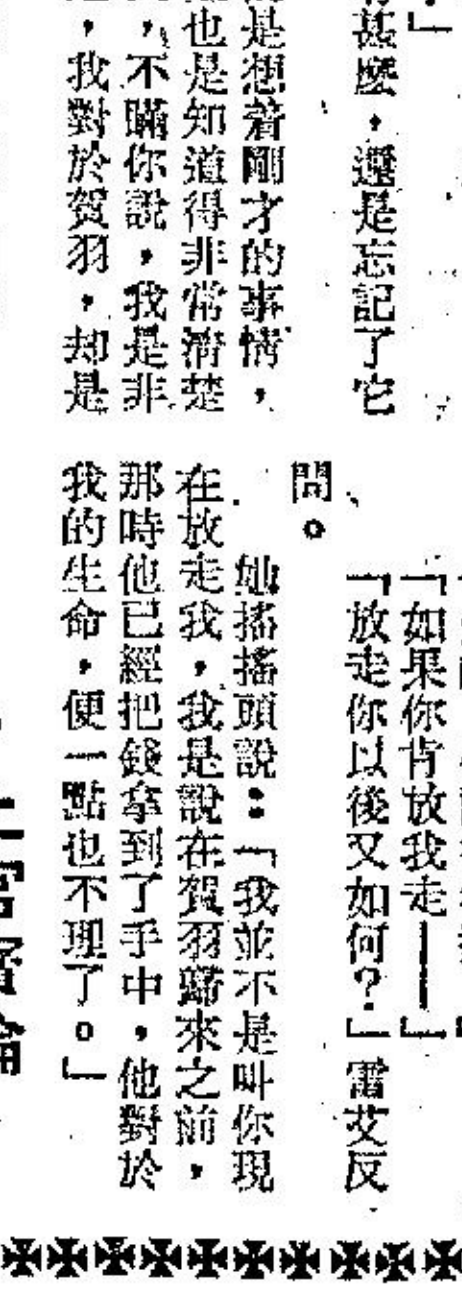 。」
甚麼，還是忘記了它
是想着剛才的事情，
也是知道得非常清楚
，不瞞你說，我是非
，我對於賀羽，却是
「如果你肯放我走——」
「放走你以後又如何？」雷艾反
問。
她搖搖頭說：「我並不是叫你現
在放走我，我是說在賀羽歸來之前，
那時他已經把錢拿到了手中，他對於
我的生命，便一點也不理了。」